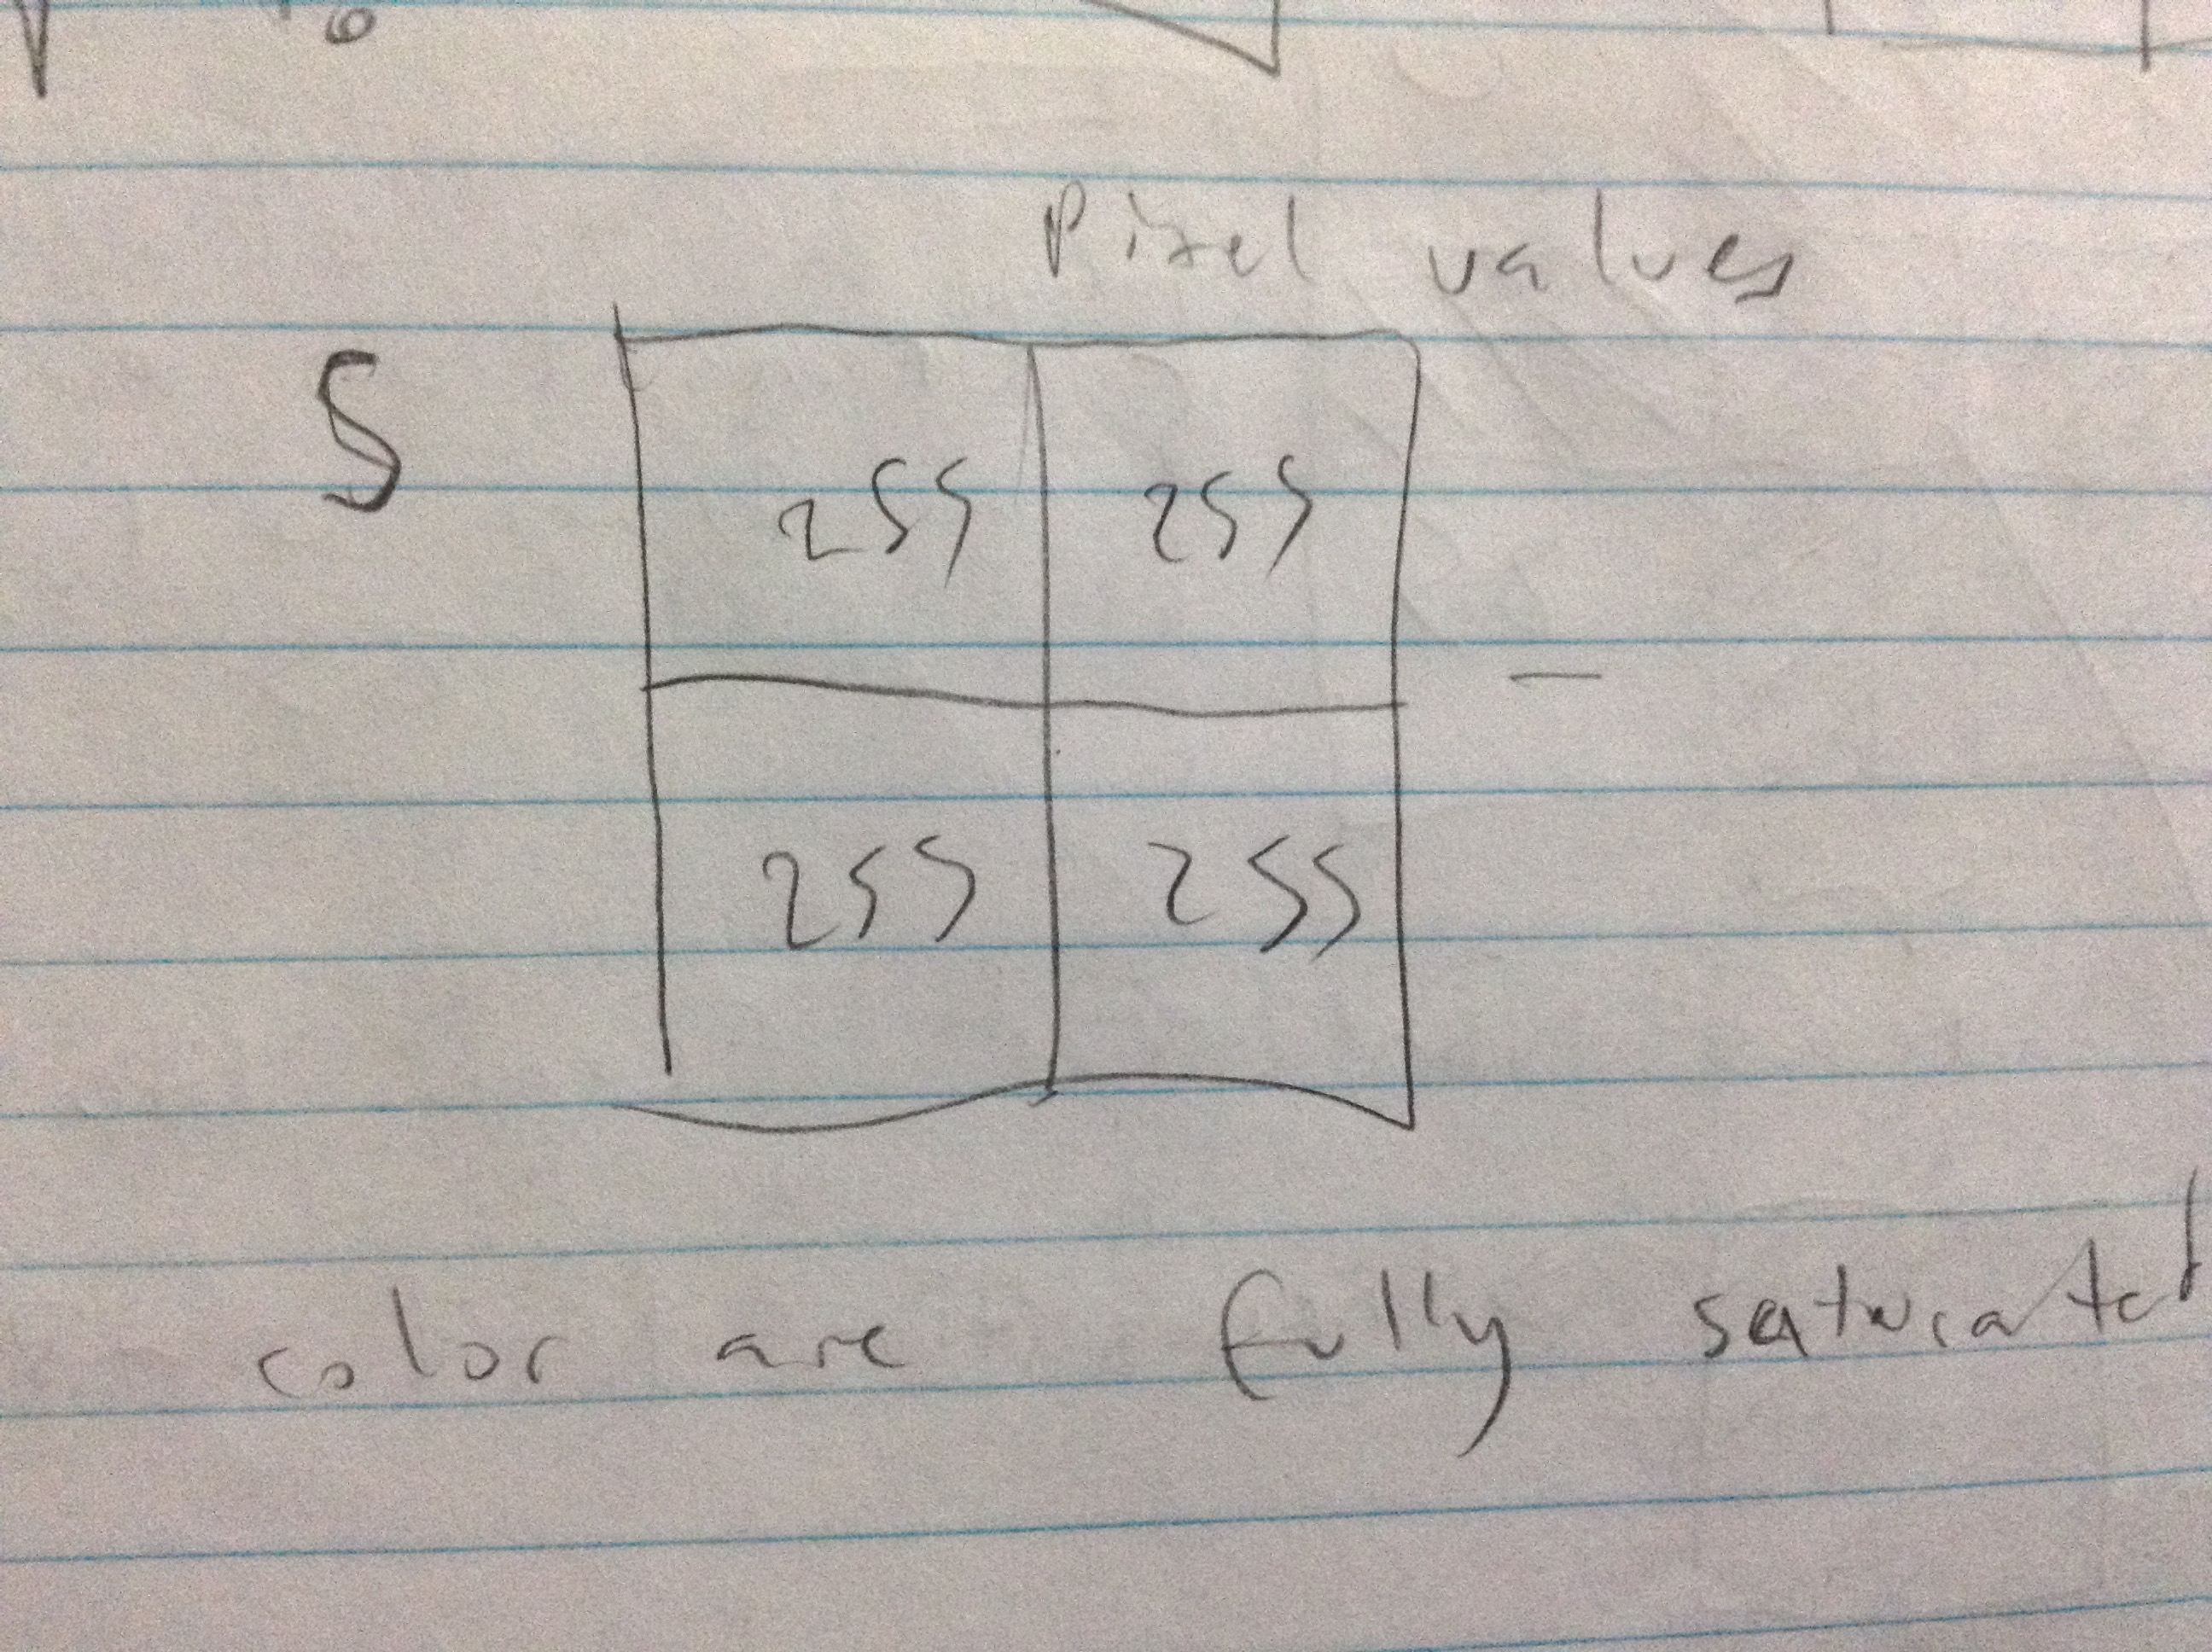 Pixel values
S
255 255
—
255 255
color are fully saturated